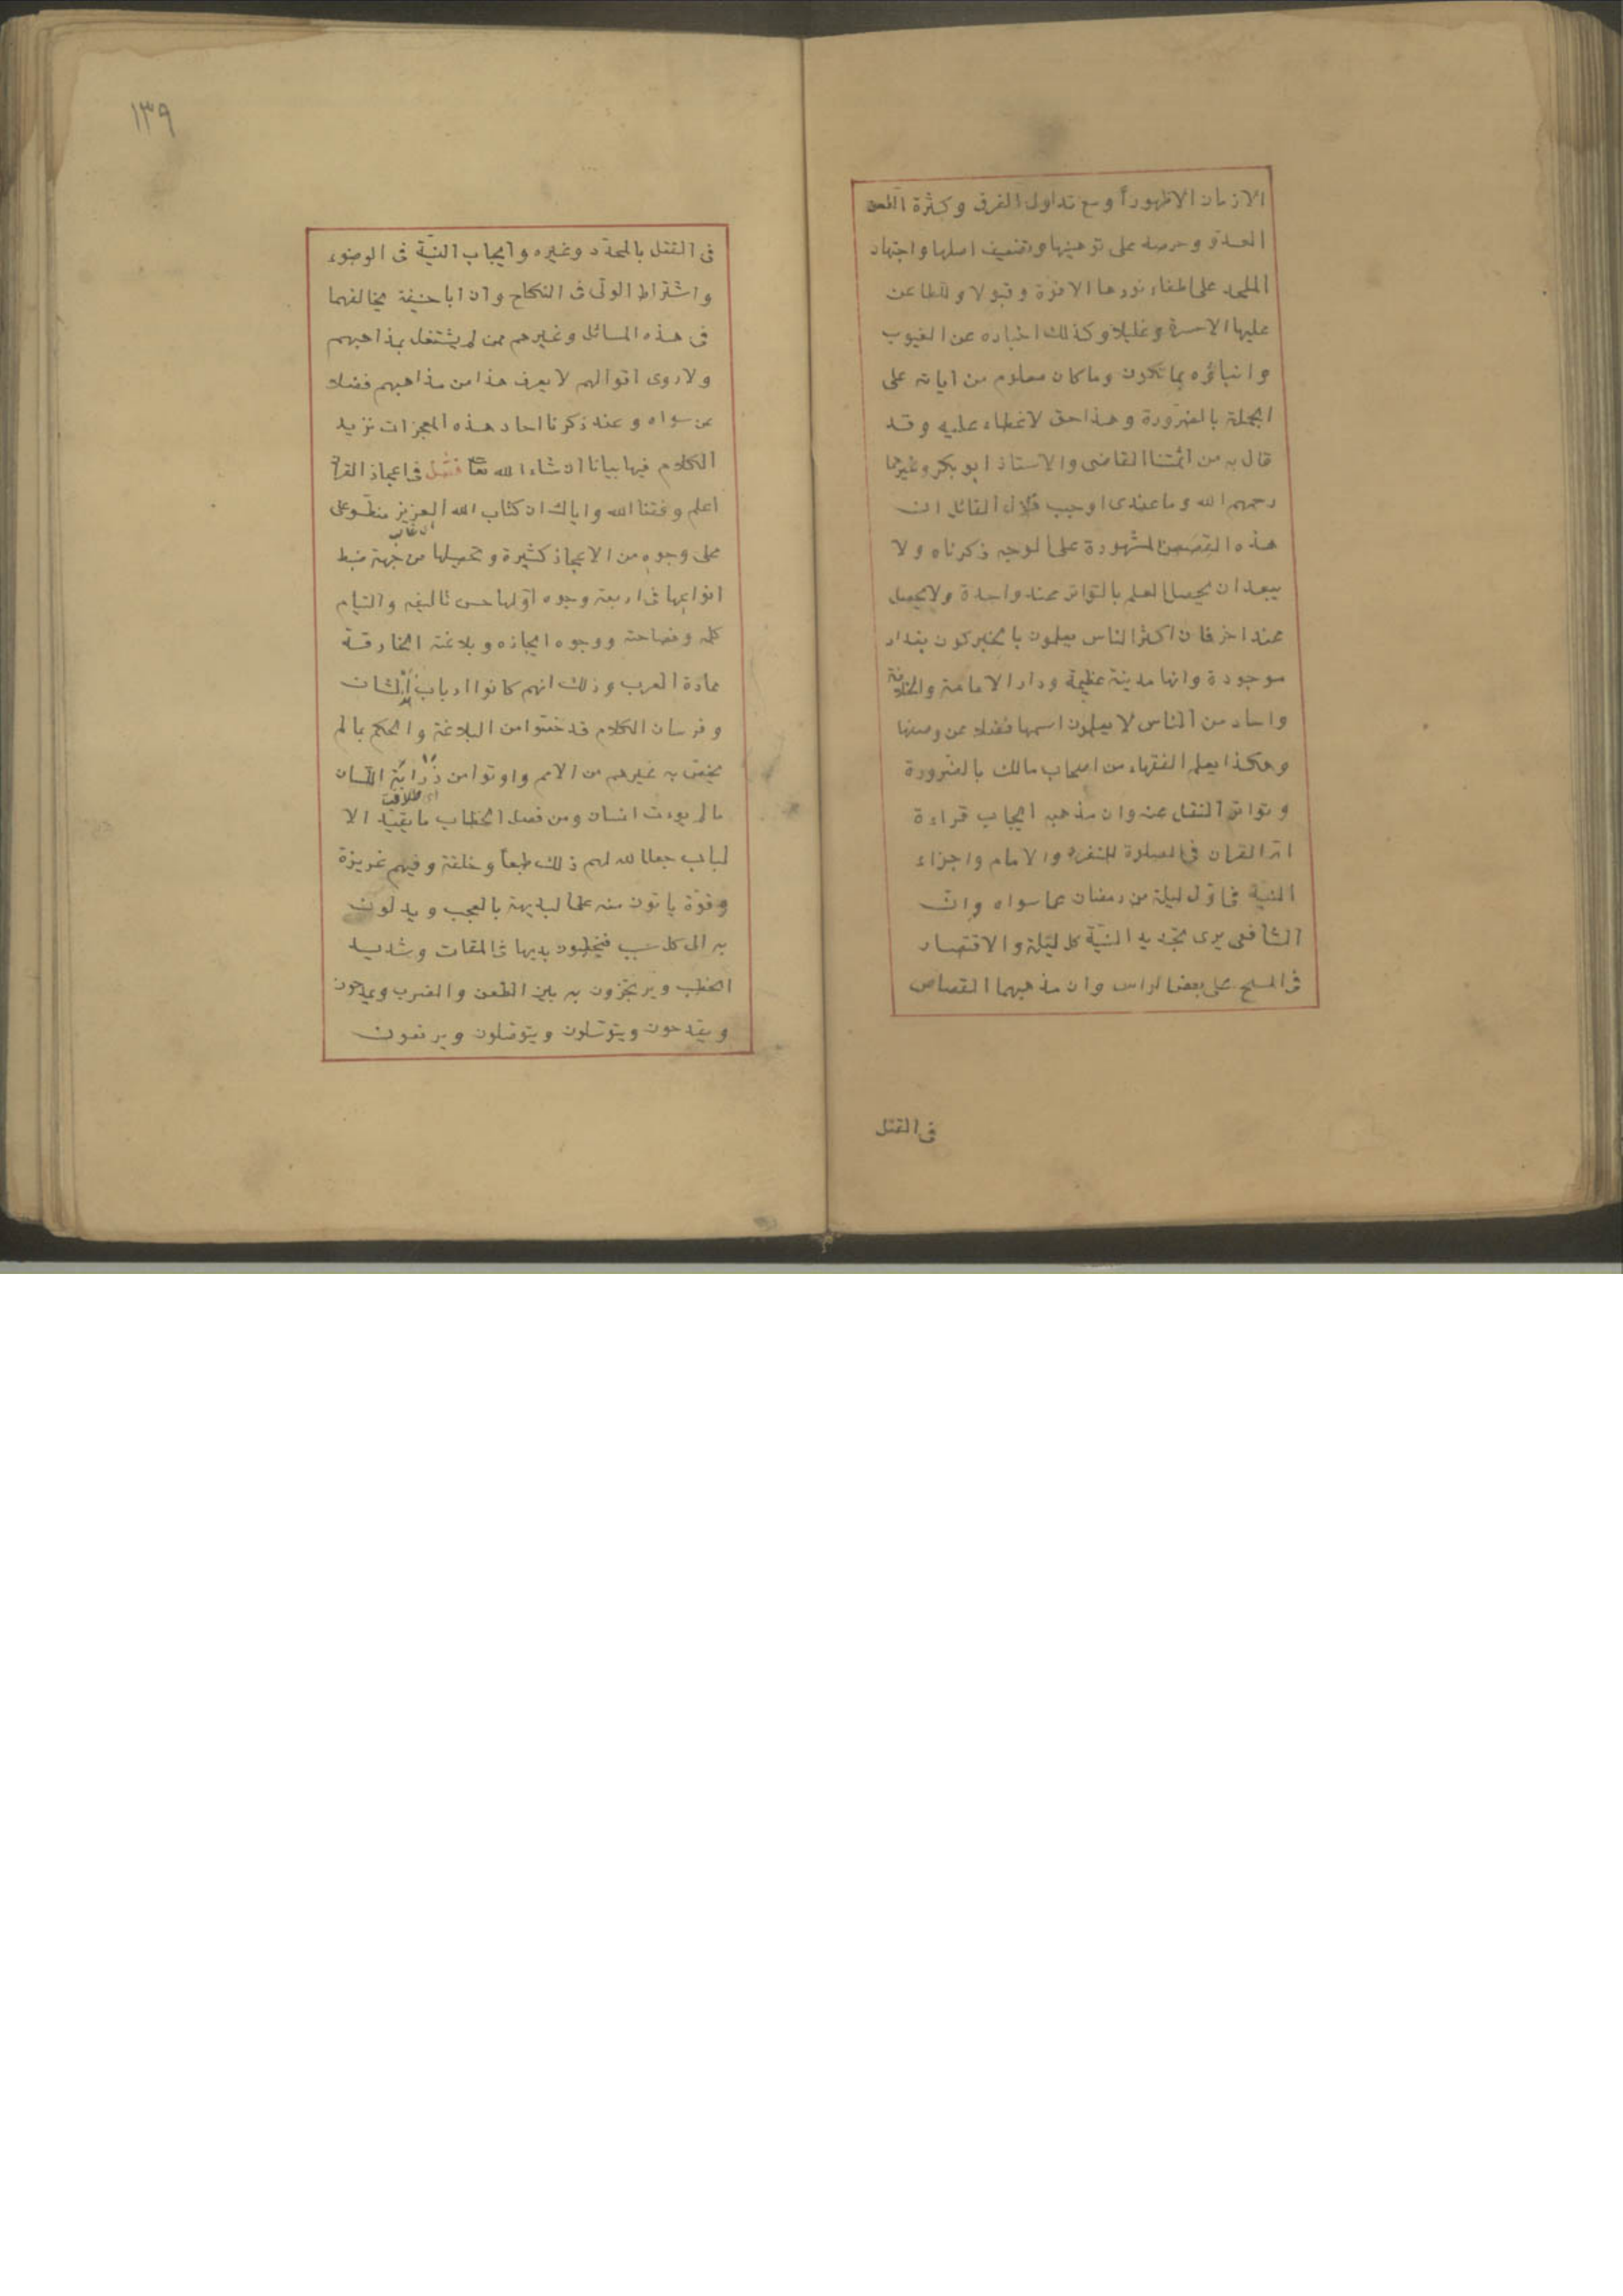 الازمان الاظهوراً ومع تداول الفرق وكثرة الطعن
العدوّ وحرصه على توهينها وتضعيف اصلها واجتهاد
الملحد على اطفاء نورها الاقوة وقبولا وللطاعن
عليها الاحسرة وغليلا وكذلك اخباره عن الغيوب
وانباؤه بما تكون وما كان معلوم من اياته على
الجملة بالضرورة وهذا حق لاغطاء عليه وقد
قال به من ائمتنا القاضى والاستاذ ابو بكر وغيرهما
رحمهم الله وما عندى اوجب قول القائل ان
هذه القصص المشهورة على الوجه ذكرناه ولا
يبعد ان يحصل العلم بالتواتر عند واحدة ولا يحصل
عند اخر فان اكثر الناس يعلمون بالخبر كون بغداد
موجودة وانها مدينة عظيمة ودار الامامة والخلافة
واحاد من الناس لا يعلمون اسمها فضلا عن وصفها
وهكذا يعلم الفقهاء من اصحاب مالك بالضرورة
وتواتر النقل عنه وان مذهبه ايجاب قراءة
ام القران فى الصلوة للمنفرد والامام واجزاء
النية فى اول ليلة من رمضان عما سواه وان
الشافعى يرى تجديد النيّة كل ليلة والاقتصار
فى المسح على بعض الراس وان مذهبهما القصاص
فى القتل
١٣٩
فى القتل بالمحدّد وغيره وايجاب النيّة فى الوضوء
واشتراط الولّى فى النكاح وان ابا حنيفة يخالفهما
فى هذه المسائل وغيرهم ممن لم يشتغل بمذاهبهم
ولا روى اقوالهم لا يعرف هذا من مذاهبهم فضلا
عن سواه وعند ذكرنا احاد هذه المعجزات نزيد
الكلام فيها بيانا ان شاء الله تعا فصل فى اعجاز القرا
اعلم وفقنا الله واياك ان كتاب الله العزيز منطو على
على وجوه من الاعجاز كثيرة وتحصيلها من جهة ضبط
انواعها فى اربعة وجوه اولها حسن تاليفه والتيام
كلمه وفصاحته ووجوه ايجازه وبلاغته الخارقة
عادة العرب وذلك انهم كانوا ارباب الشان
وفرسان الكلام قد خصّوا من البلاغة والحكم بما لم
يخصّ به غيرهم من الامم واوتوا من ذرابة اللسان
اى طلاقت
ما لم يوءت انسان ومن فصل الخطاب ما يقيّد الا
لباب جعل الله لهم ذلك طبعاً وخلقة وفيهم غريزة
وقوّة ياتون منه على البديهة بالعجب ويدلون
به الى كل سبب فيخطبون بديها فى المقات وشديد
الخطب ويرتجزون به بين الطعن والضرب ويمدحون
ويقدحون ويتوسّلون ويتوصّلون ويرفعون